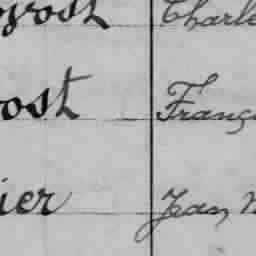 ovost Charle
ost Franç
ier Jean